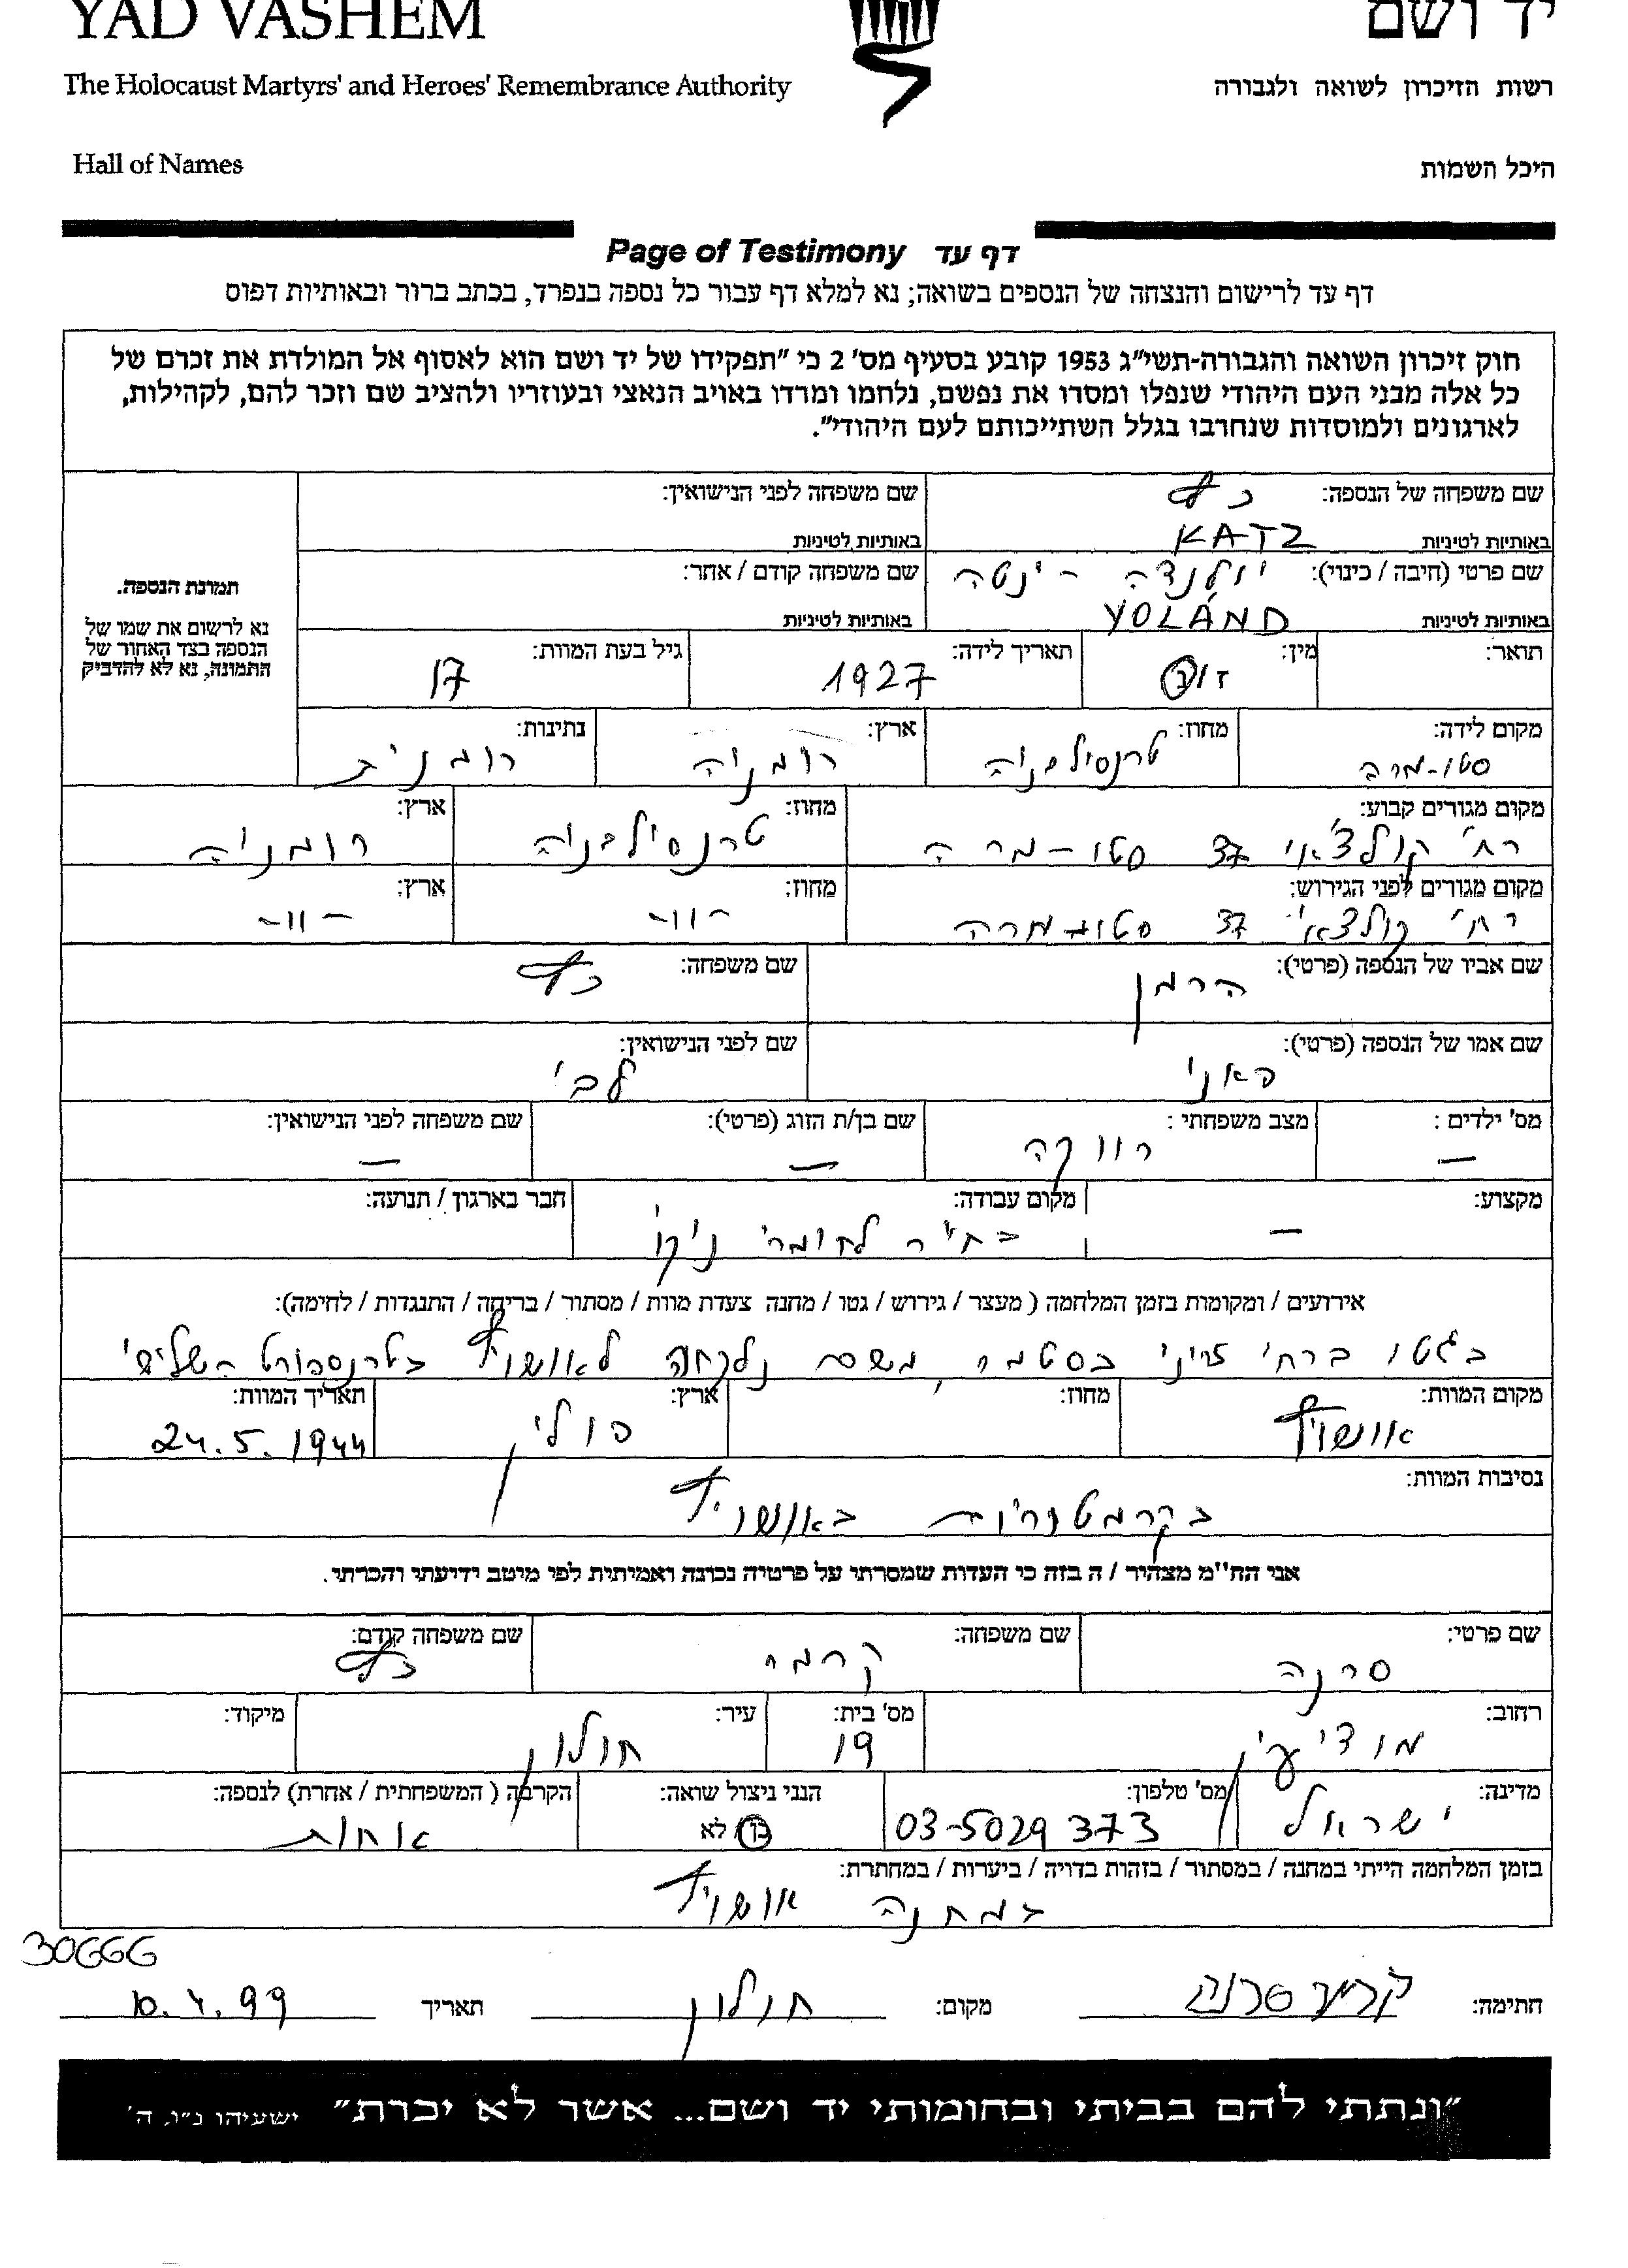 YAD VASHEM יד ושם
The Holocaust Martyrs' and Heroes' Remembrance Authority רשות הזיכרון לשואה ולגבורה
Hall of Names היכל השמות
Page of Testimony דף עד
דף עד לרישום והנצחה של הנספים בשואה; נא למלא דף עבור כל נספה בנפרד, בכתב ברור ובאותיות דפוס
חוק זיכרון השואה והגבורה-תשי"ג 1953 קובע בסעיף מס' 2 כי "תפקידו של יד ושם הוא לאסוף אל המולדת את זכרם של
כל אלה מבני העם היהודי שנפלו ומסרו את נפשם, נלחמו ומרדו באויב הנאצי ובעוזריו ולהציב שם וזכר להם, לקהילות,
לארגונים ולמוסדות שנחרבו בגלל השתייכותם לעם היהודי".
שם משפחה של הנספה: כץ שם משפחה לפני הנישואין:
באותיות לטיניות KATZ באותיות לטיניות
שם פרטי (חיבה / כינוי): יולנדה - ינטה שם משפחה קודם / אחר:
באותיות לטיניות YOLÁND באותיות לטיניות
תמונת הנספה.
נא לרשום את שמו של
הנספה בצד האחור של
התמונה, נא לא להדביק
תואר: מין: ז / נ תאריך לידה: 1927 גיל בעת המוות: 17
מקום לידה: סטו-מרה מחוז: טרנסילבניה ארץ: רומניה נתינות: רומנית
מקום מגורים קבוע: רח' קולצ'אי 37 סטו-מרה מחוז: טרנסילבניה ארץ: רומניה
מקום מגורים לפני הגירוש: רח' קולצאי 37 סטו-מרה מחוז: -"- ארץ: -"-
שם אביו של הנספה (פרטי): הרמן שם משפחה: כץ
שם אמו של הנספה (פרטי): פאני שם לפני הנישואין: לבי
מס' ילדים: — מצב משפחתי: רווקה שם בן/ת הזוג (פרטי): — שם משפחה לפני הנישואין: —
מקצוע: — מקום עבודה: ניקוי חבר בארגון / תנועה:
אירועים / ומקומות בזמן המלחמה ( מעצר / גירוש / גטו / מחנה צעדת מוות / מסתור / בריחה / התנגדות / לחימה):
בגטו ברח' זריני בסטמר, משם נלקחה לאושויץ בטרנספורט השלישי
מקום המוות: אוושויץ מחוז: ארץ: פולין תאריך המוות: 24.5.1944
נסיבות המוות: בקרמטוריות באושויץ
אני הח"מ מצהיר / ה בזה כי העדות שמסרתי על פרטיה נכונה ואמיתית לפי מיטב ידיעתי והכרתי.
שם פרטי: סרנה שם משפחה: קרמר שם משפחה קודם: כץ
רחוב: מודיעין מס' בית: 19 עיר: חולון מיקוד:
מדינה: ישראל מס' טלפון: 03-5029373 הנני ניצול שואה: כן / לא הקרבה ( המשפחתית / אחרת) לנספה: אחות
בזמן המלחמה הייתי במחנה / במסתור / בזהות בדויה / ביערות / במחתרת:
במחנה אושויץ
30666
חתימה: קרמר סרנה מקום: חולון תאריך 10.4.99
"ונתתי להם בביתי ובחומותי יד ושם... אשר לא יכרת" ישעיהו נ"ו, ה'